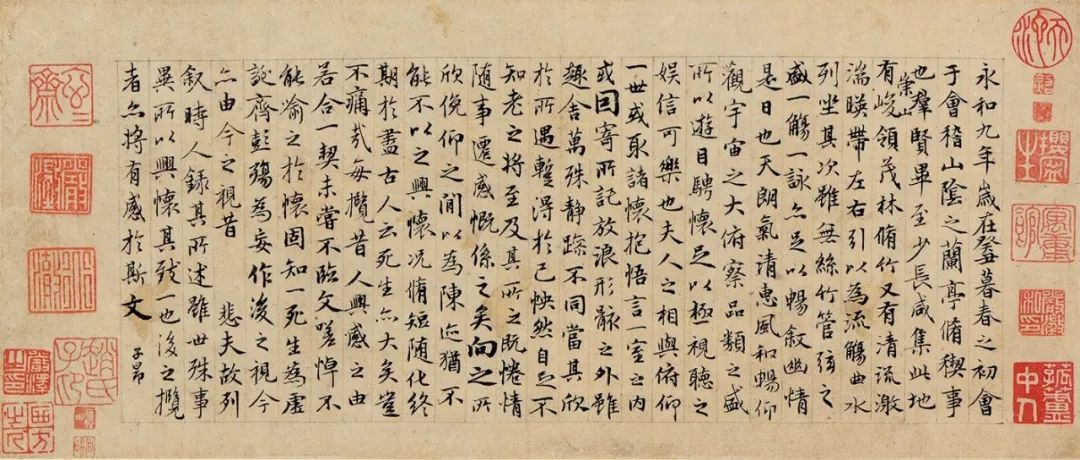 永和九年歲在癸丑暮春之初會
于會稽山陰之蘭亭脩稧事
也羣賢畢至少長咸集此地
有崇山峻領茂林脩竹又有清流激
湍暎帶左右引以為流觴曲水
列坐其次雖無絲竹管弦之
盛一觴一詠亦足以暢敘幽情
是日也天朗氣清惠風和暢仰
觀宇宙之大俯察品類之盛
所以遊目騁懷足以極視聽之
娛信可樂也夫人之相與俯仰
一世或取諸懷抱悟言一室之內
或因寄所託放浪形骸之外雖
趣舍萬殊靜躁不同當其欣
於所遇蹔得於己怏然自足不
知老之將至及其所之既惓情
隨事遷感慨係之矣向之所
欣俛仰之間以為陳迹猶不
能不以之興懷況脩短隨化終
期於盡古人云死生亦大矣豈
不痛哉每攬昔人興感之由
若合一契未嘗不臨文嗟悼不
能喻之於懷固知一死生為虛
誕齊彭殤為妄作後之視今
亦由今之視昔 悲夫故列
敘時人錄其所述雖世殊事
異所以興懷其致一也後之攬
者亦將有感於斯文
子昂
趙氏子昂